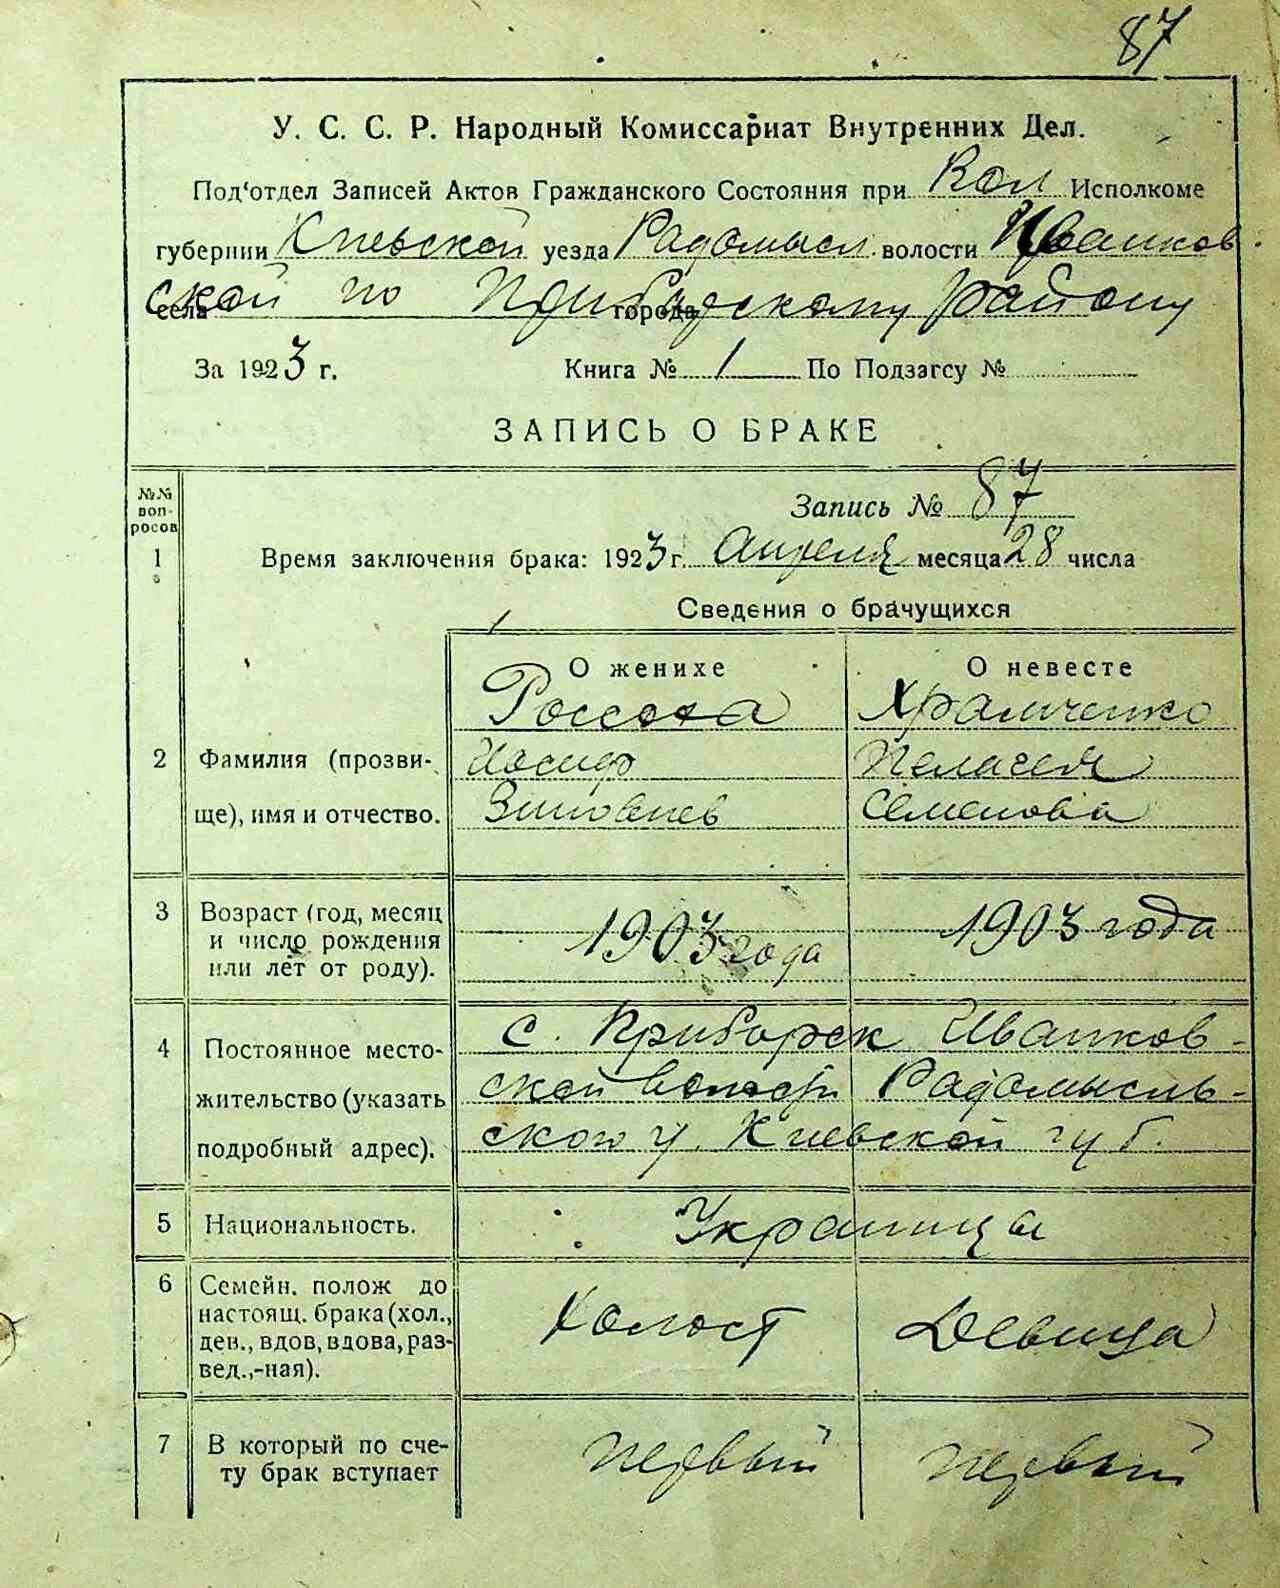 87
У. С. С. Р. Народный Комиссариат Внутренних Дел.
Под‘отдел Записей Актов Гражданского Состояния при Вол Исполкоме
губернии Киевской уезда Радомысл. волости Иванков
села ской по города Прибирскому району
За 1923 г. Книга № 1 По Подзагсу №
ЗАПИСЬ О БРАКЕ
№№ воп-
росов
Запись № 87
1 Время заключения брака: 1923 г. Апреля месяца 28 числа
Сведения о брачущихся
О женихе О невесте
Россоха Храмченко
2 Фамилия (прозви- Иосиф Пелагея
ще), имя и отчество. Зиновиев Семенова
3 Возраст (год, месяц
и число рождения 1903 года 1903 года
или лет от роду).
4 Постоянное место- с.Приборск Иванков-
жительство (указать ской волости Радомысль-
подробный адрес). ского у. Киевской губ.
5 Национальность. Украинцы
6 Семейн. полож до
настоящ. брака (хол., Холост Девица
дев., вдов, вдова, раз-
вед.,-ная).
7 В который по сче- первый первый
ту брак вступает